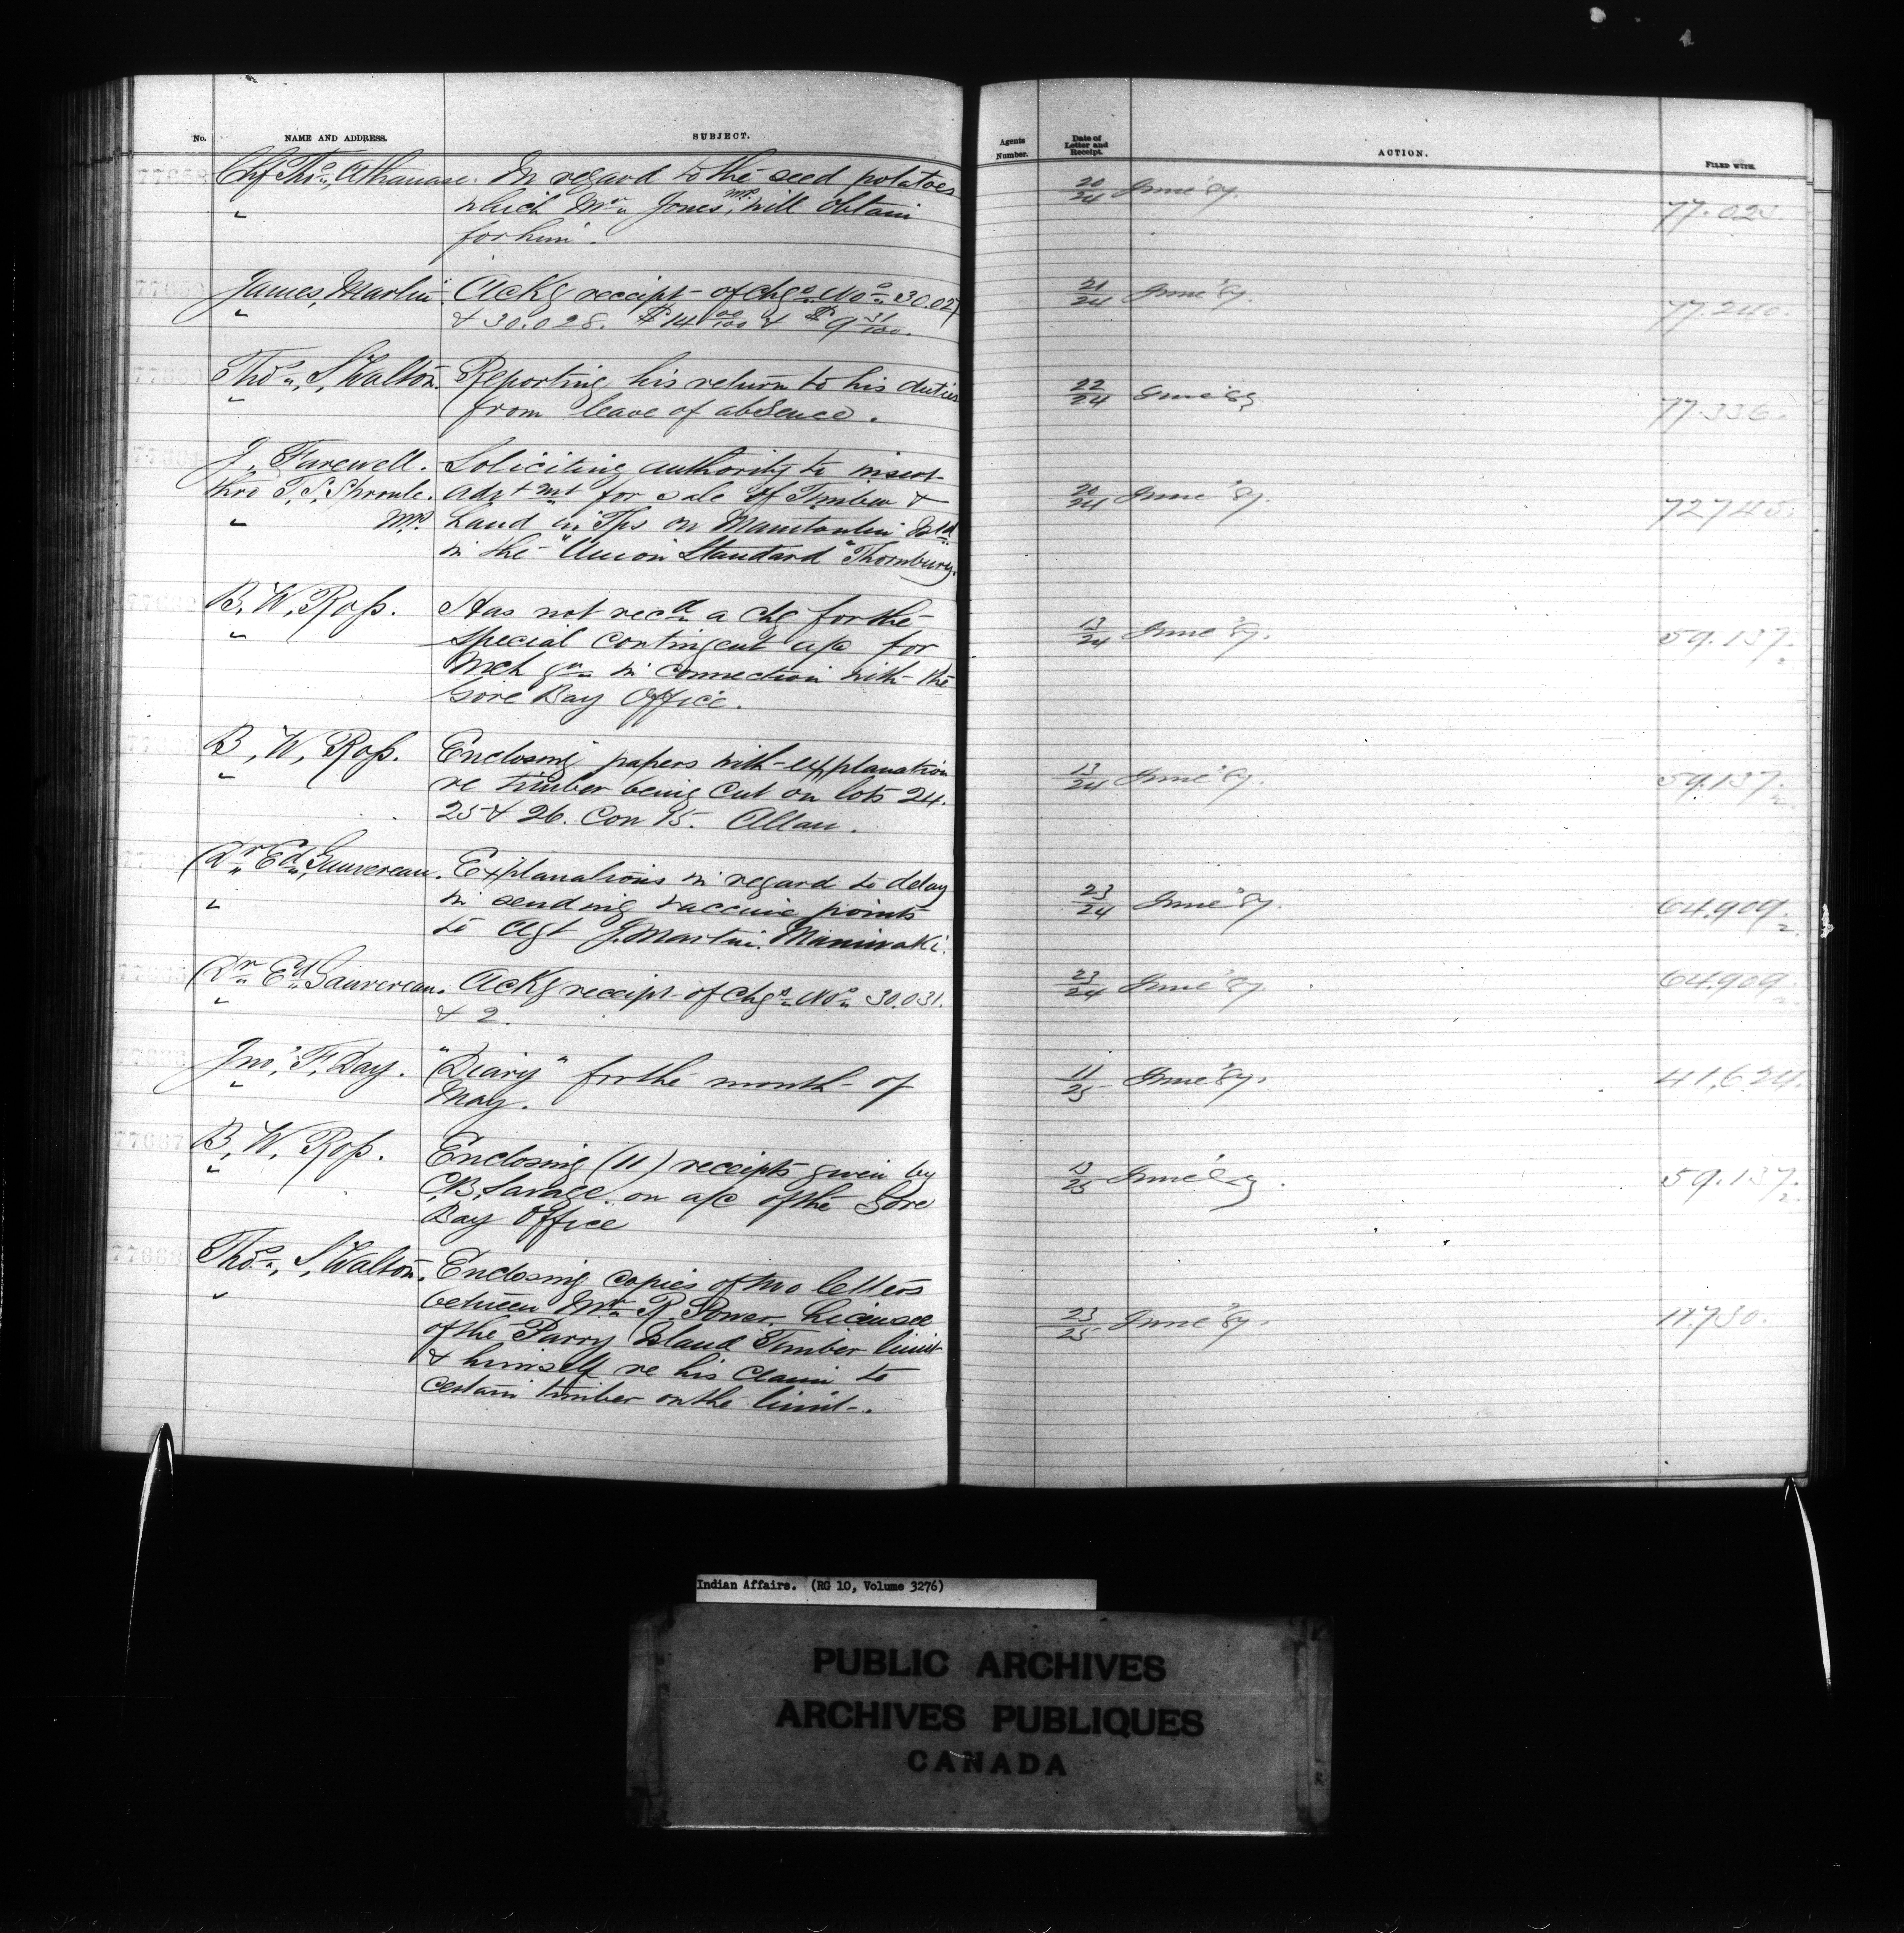 No. NAME AND ADDRESS. SUBJECT. Agents Number. Date of Letter and Receipt. ACTION. FILED WITH.
77658 Chf Thos. Athanase. In regard to the seed potatoes 20/24 June '87. 77.023.
" which Mr. Jones, MP. will obtain
for him.
77659 James Martin. Ackg receipt of Chqs Nos 30.027 21/24 June '87. 77.240.
& 30.028. $14 00/100 & $9 31/100.
77660 Thos. S. Walton. Reporting his return to his duties 22/24 June '87 77.336.
" from leave of absence.
77661 J. Farewell. Soliciting authority to insert
thro T. S. Sproule. advtmt for sale of Timber & 20/24 June '87. 72745.
" MP. Land in Tps on Manitoulin Isld
in the "Union Standard" Thornbury.
77662 B. W. Ross. Has not recd a chq for the 13/24 June '87. 59.137.
" special contingent a/c for
Mch in connection with the
Gore Bay Office.
77663 B. W. Ross. Enclosing papers with explanation 13/24 June '87. 59.137.
" re timber being cut on lots 24.
25 & 26. Con 15. Allan.
77664 Dr. Ed. Gauvreau. Explanations in regard to delay 23/24 June '87. 64.909.
" in sending vaccine points
to Agt J. Martin. Maniwaki.
77665 Dr. Ed. Gauvreau. Ackg receipt of Chqs Nos 30.031. 23/24 June '87. 64.909
" & 2.
77666 Jno. F. Day. "Diary" for the month of 11/25 June '87. 41,624.
" May.
77667 B. W. Ross. Enclosing (11) receipts given by 13/25 June '87. 59.137.
" C. B. Savage. on a/c of the Gore
Bay Office
77668 Thos. S. Walton. Enclosing copies of two letters
" between Mr. R. Power Licensee 23/25 June '87. 11.730.
of the Parry Island Timber limit
& himself re his claim to
certain timber on the limit.
Indian Affairs. (RG 10, Volume 3276)
PUBLIC ARCHIVES
ARCHIVES PUBLIQUES
CANADA